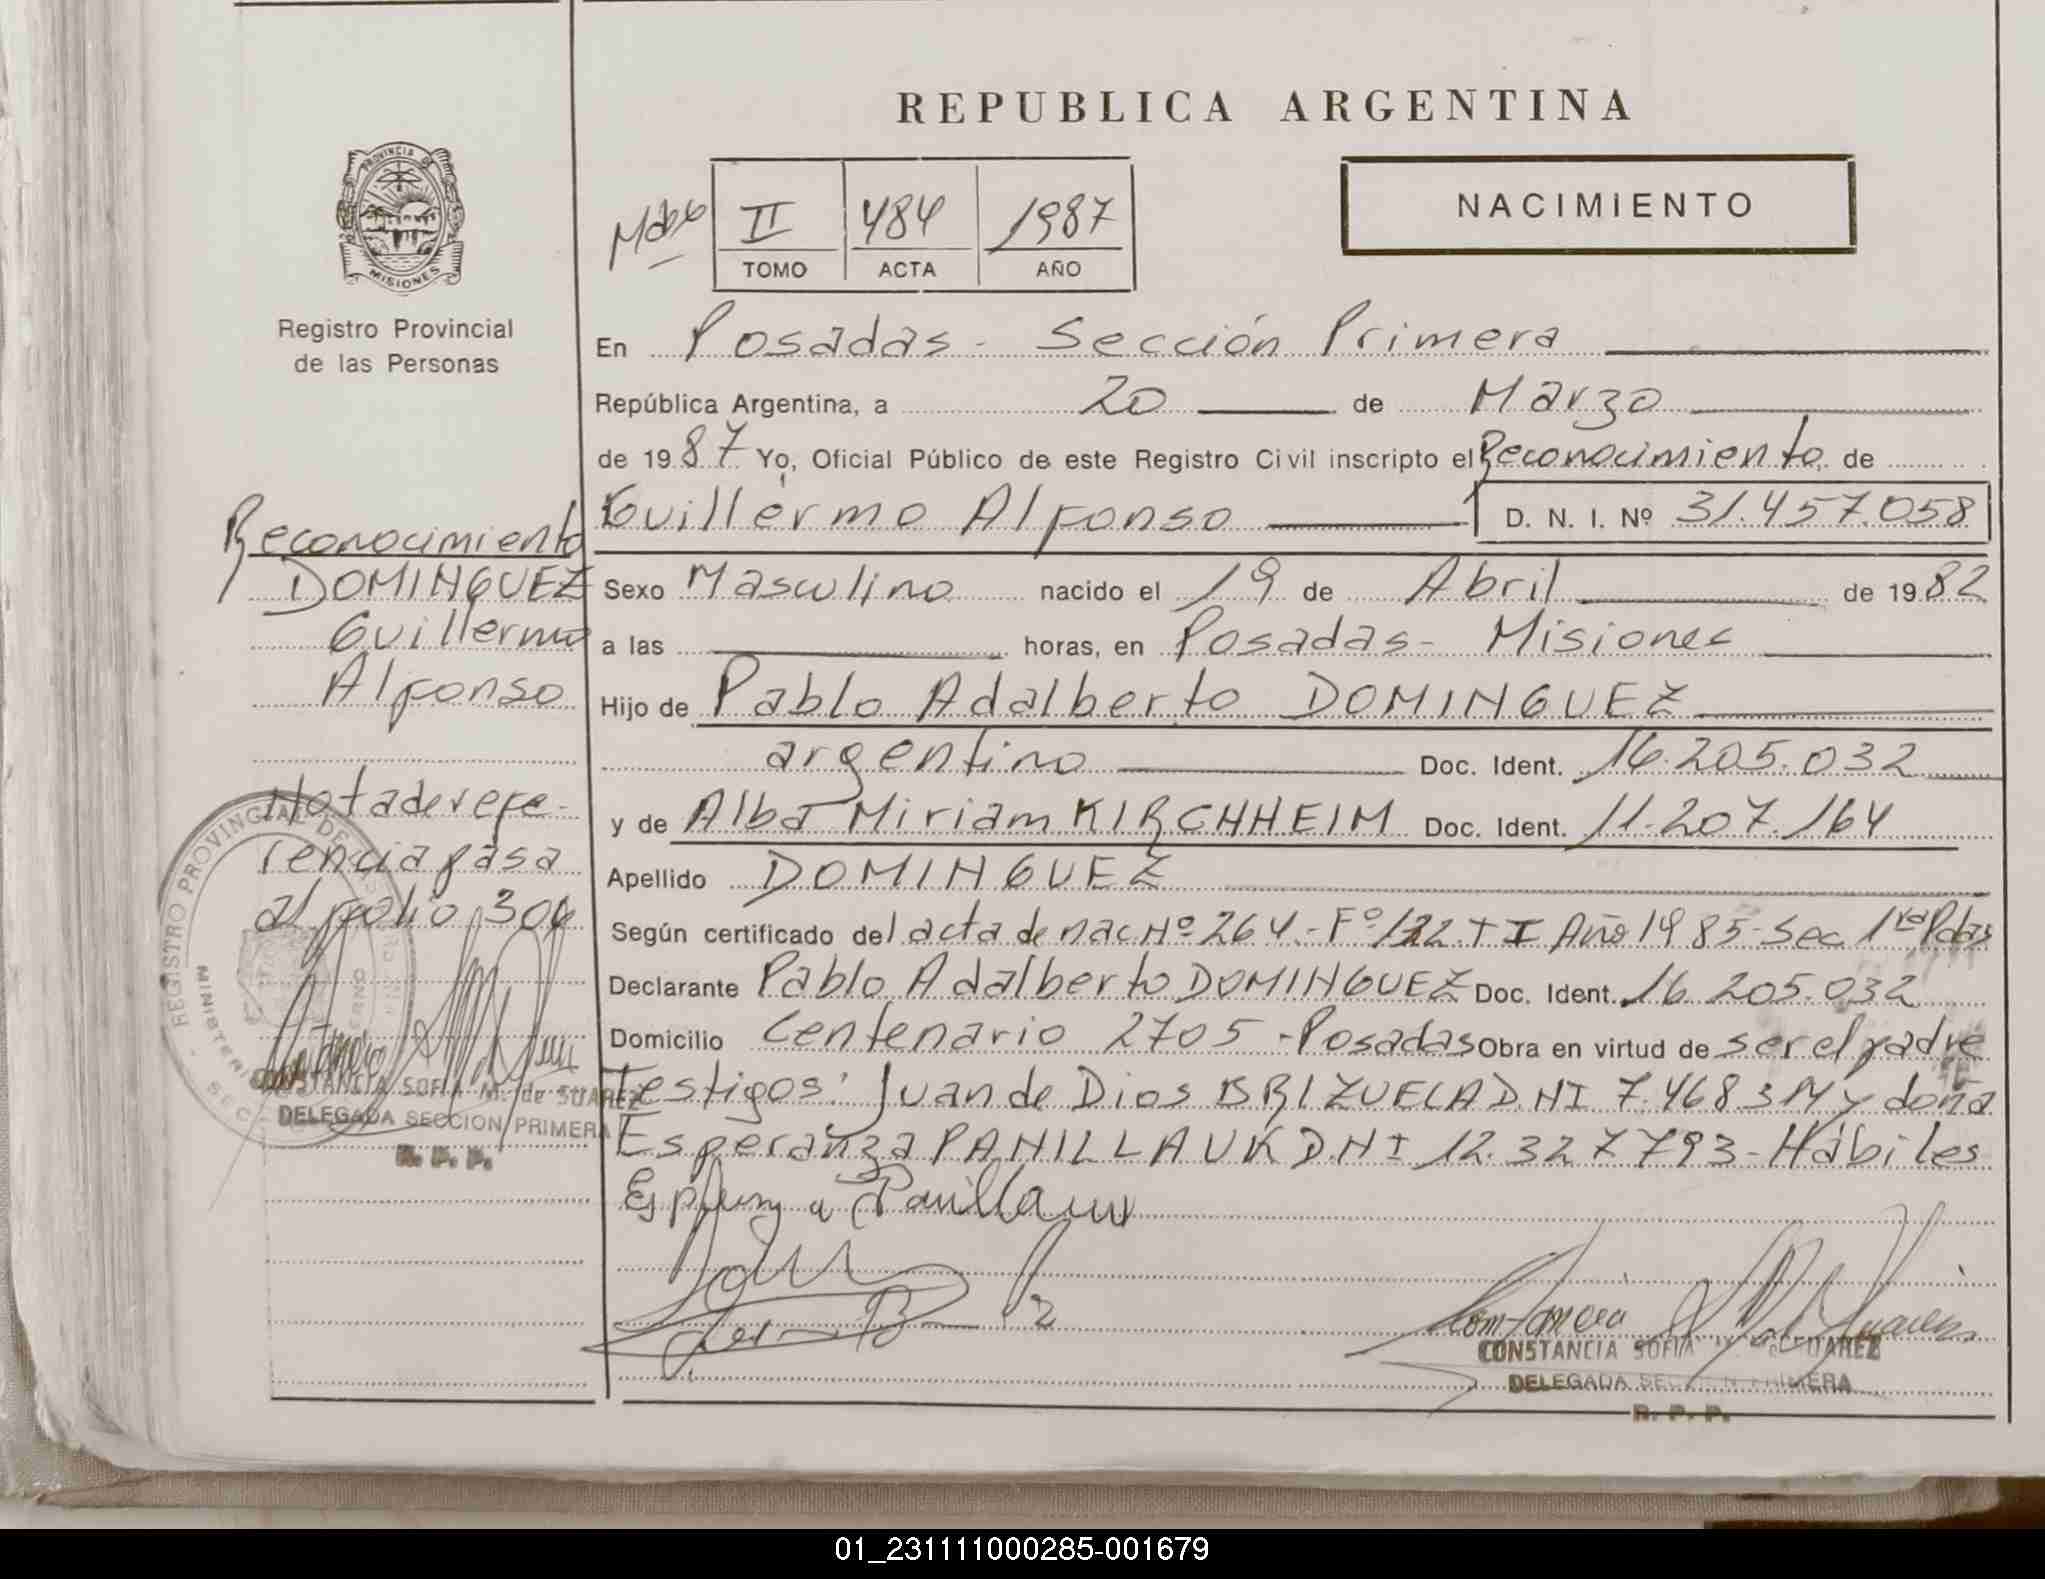 REPUBLICA ARGENTINA
PROVINCIA DE
MISIONES
Registro Provincial
de las Personas
II 484 1987
TOMO ACTA AÑO
NACIMIENTO
En Posadas - Sección Primera
República Argentina, a 20 de Marzo
de 1987 Yo, Oficial Público de este Registro Civil inscripto el Reconocimiento de
Guillermo Alfonso D. N. I. Nº 31.457.058
Sexo Masculino nacido el 19 de Abril de 1982
a las horas, en Posadas - Misiones
Hijo de Pablo Adalberto DOMINGUEZ
argentino Doc. Ident. 16.205.032
y de Alba Miriam KIRCHHEIM Doc. Ident. 11.207.164
Apellido DOMINGUEZ
Según certificado del acta de nac Nº 264 - Fº 122 T I Año 1985 - Sec 1ra Pdas
Declarante Pablo Adalberto DOMINGUEZ Doc. Ident. 16.205.032
Domicilio Centenario 2705 - Posadas Obra en virtud de ser el padre
Testigos: Juan de Dios BRIZUELA D.NI 7.468 y doña
Esperanza PANILLAUK D.NI 12.327793 - Hábiles
CONSTANCIA SOFIA M. de SUAREZ
DELEGADA SECCION PRIMERA
R. P. P.
Reconocimiento
DOMINGUEZ
Guillermo
Alfonso
Nota de refe-
rencia pasa
al folio 306
REGISTRO PROVINCIAL DE LAS
CONSTANCIA SOFIA M. de SUAREZ
DELEGADA SECCION PRIMERA
R. P. P.
01_231111000285-001679